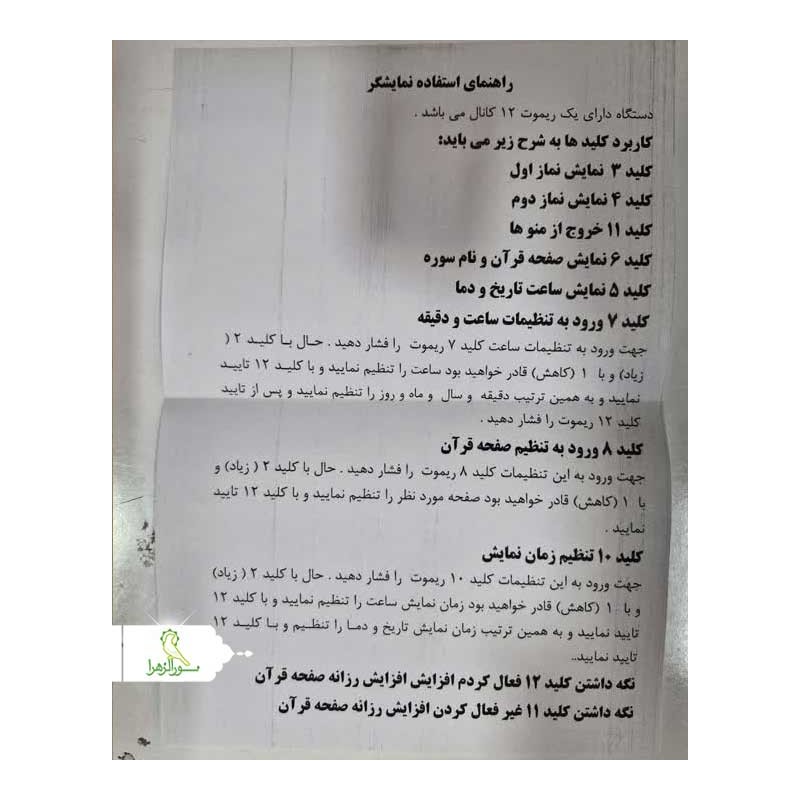 راهنمای استفاده نمایشگر
دستگاه دارای یک ریموت ۱۲ کانال می باشد .
کاربرد کلید ها به شرح زیر می باید:
کلید ۳ نمایش نماز اول
کلید ۴ نمایش نماز دوم
کلید ۱۱ خروج از منو ها
کلید ۶ نمایش صفحه قرآن و نام سوره
کلید ۵ نمایش ساعت تاریخ و دما
کلید ۷ ورود به تنظیمات ساعت و دقیقه
جهت ورود به تنظیمات ساعت کلید ۷ ریموت را فشار دهید . حال با کلید ۲ (
زیاد) و با ۱ (کاهش) قادر خواهید بود ساعت را تنظیم نمایید و با کلید ۱۲ تایید
نمایید و به همین ترتیب دقیقه و سال و ماه و روز را تنظیم نمایید و پس از تایید
کلید ۱۲ ریموت را فشار دهید .
کلید ۸ ورود به تنظیم صفحه قرآن
جهت ورود به این تنظیمات کلید ۸ ریموت را فشار دهید . حال با کلید ۲ ( زیاد) و
با ۱ (کاهش) قادر خواهید بود صفحه مورد نظر را تنظیم نمایید و با کلید ۱۲ تایید
نمایید .
کلید ۱۰ تنظیم زمان نمایش
جهت ورود به این تنظیمات کلید ۱۰ ریموت را فشار دهید . حال با کلید ۲ ( زیاد)
و با ۱ (کاهش) قادر خواهید بود زمان نمایش ساعت را تنظیم نمایید و با کلید ۱۲
تایید نمایید و به همین ترتیب زمان نمایش تاریخ و دما را تنظیم و با کلید ۱۲
تایید نمایید..
نگه داشتن کلید ۱۲ فعال کردم افزایش افزایش رزانه صفحه قرآن
نگه داشتن کلید ۱۱ غیر فعال کردن افزایش رزانه صفحه قرآن